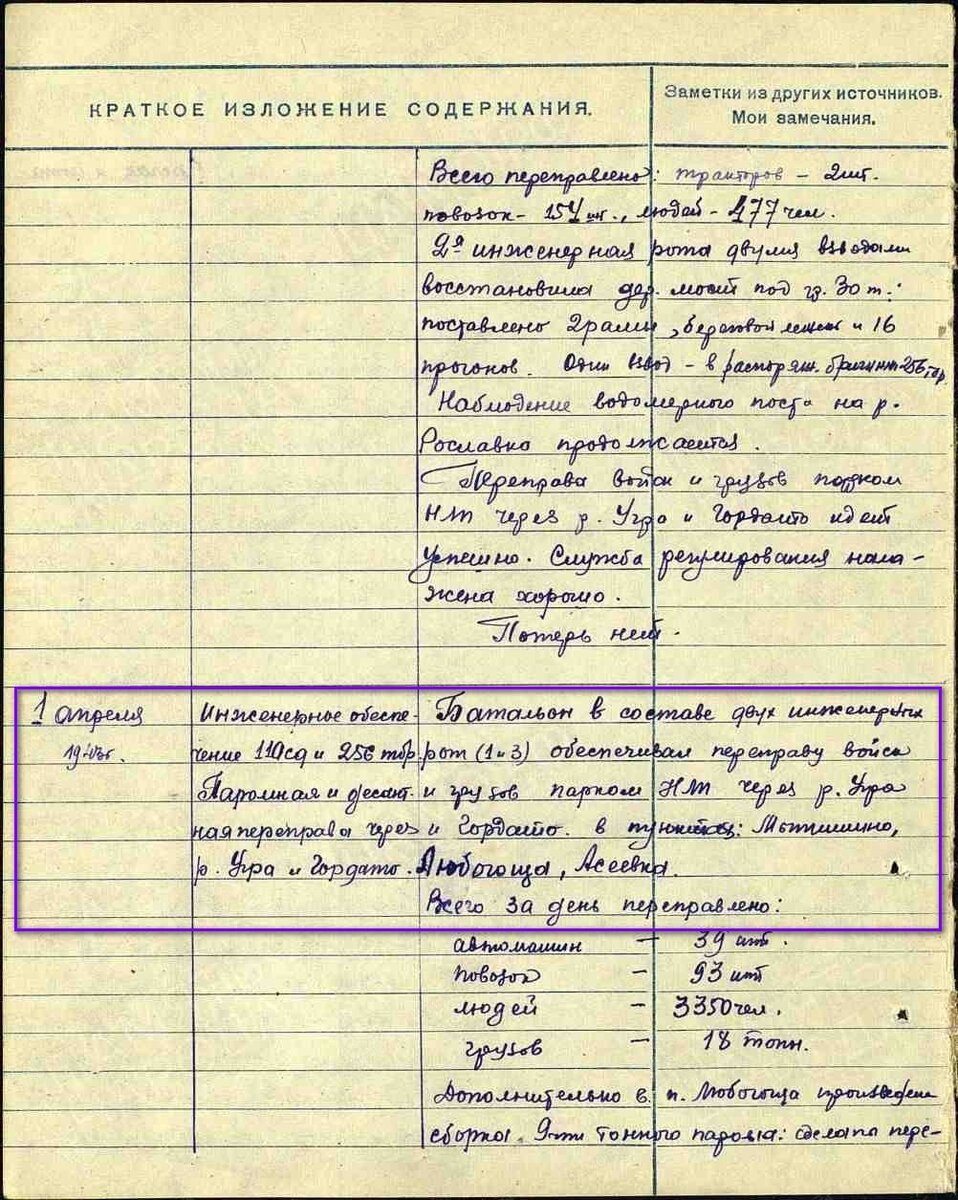 КРАТКОЕ ИЗЛОЖЕНИЕ СОДЕРЖАНИЯ.
Заметки из других источников.
Мои замечания.
Всего переправлено: тракторов – 2 шт.
повозок – 154 шт., людей – 477 чел.
2я инженерная рота двумя взводами
восстановила дер. мост под гр. 30 т.:
поставлено 2 рамы, береговой лежень и 16
прогонов. Один взвод – в распоряж. 256 тбр.
Наблюдение водомерного поста на р.
Рославка продолжается.
Переправа войск и грузов парком
НЛП через р. Угра и Гордато идет
успешно. Служба регулирования нала-
жена хорошо.
Потерь нет.
1 апреля
1943г.
Инженерное обеспе-
чение 110сд и 256 тбр.
Паромная и десант-
ная переправа через
р. Угра и Гордато.
Батальон в составе двух инженерных
рот (1 и 3) обеспечивал переправу войск
и грузов парком НЛП через р. Угра
и Гордато. в пунктах: Мытишино,
Любогоща, Асеевка.
Всего за день переправлено:
автомашин – 39 шт.
повозок – 93 шт
людей – 3350 чел.
грузов – 18 тонн.
Дополнительно в п. Любогоща произведена
сборка 9-ти тонного парома: сделана пере-